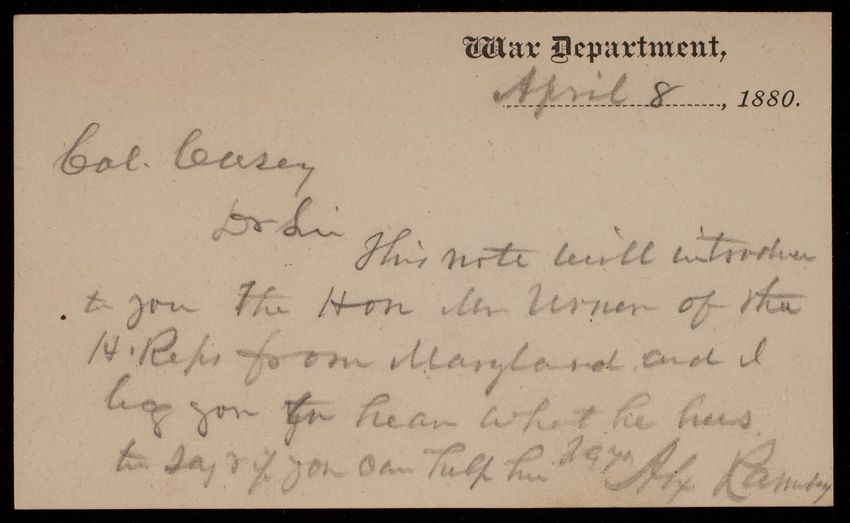 War Department,
April 8, 1880.
Col. Casey
Dr Sir
This note will introduce
to you the Hon Mr Urner of the
H. Reps from Maryland and I
beg you to hear what he has
to say & if you can help him
Alx. Ramsey